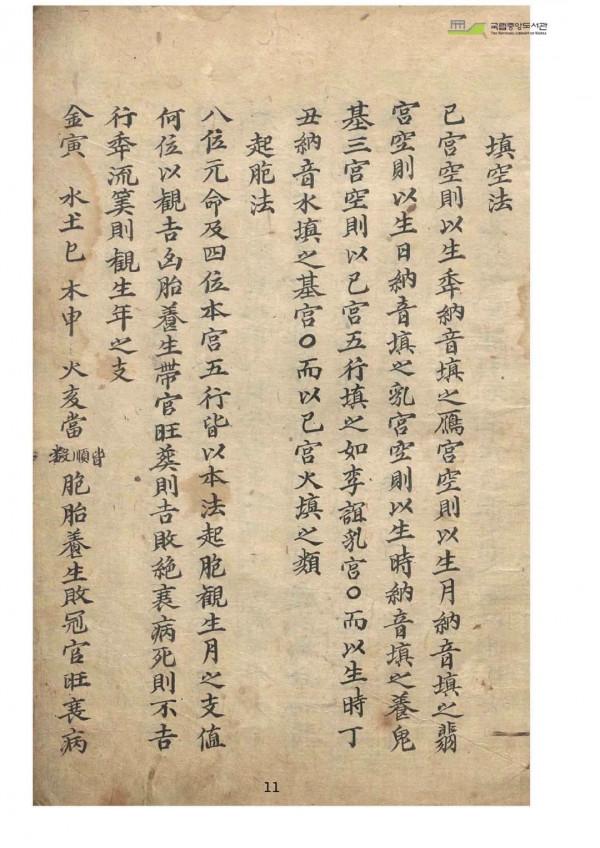 국립중앙도서관
THE NATIONAL LIBRARY OF KOREA
填空法
己宮空則以生年納音填之鴈宮空則以生月納音填之翡
宮空則以生日納音填之乳宮空則以生時納音填之養鬼
基三宮空則以己宮五行填之如李誼乳宮〇而以生時丁
丑納音水填之基宮〇而以己宮火填之類
起胞法
八位元命及四位本宮五行皆以本法起胞觀生月之支值
何位以觀吉凶胎養生帶官旺葬則吉敗絶衰病死則不吉
行年流筭則觀生年之支
金寅 水土巳 木申 火亥當皆順數胞胎養生敗冠官旺衰病
11